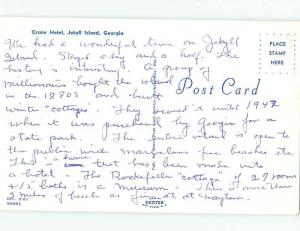 Crane Hotel, Jekyll Island, Georgia
We had a wonderful time on Jekyll
Island. Stayed a day and a half. The
history is interesting. A group of
millionaires bought the island
in the 1880s and built
winter "cottages". They owned it until 1947
when it was purchased by Georgia for a
state park. The entire island is open to
the public with marvelous free beaches etc.
This is a home that has been made into
a hotel. The Rockefeller "cottage" of 27 rooms
+ 15 baths is a museum. There
miles of beach as
Post Card
PLACE
STAMP
HERE
DEXTER